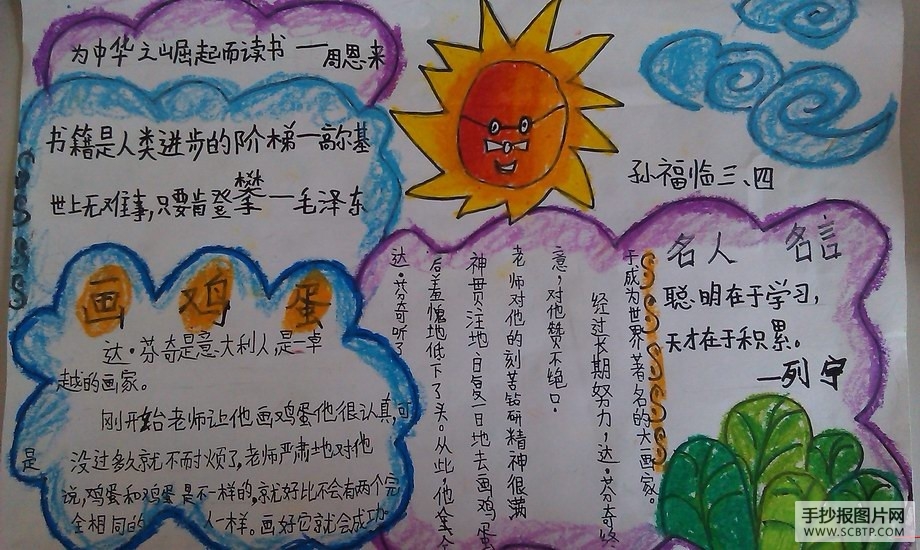 为中华之崛起而读书—周恩来
书籍是人类进步的阶梯—高尔基
世上无难事,只要肯登攀—毛泽东
孙福临三、四
画鸡蛋
达·芬奇是意大利人是一卓
越的画家。
刚开始老师让他画鸡蛋他很认真,可
是没过多久就不耐烦了,老师严肃地对他
说,鸡蛋和鸡蛋是不一样的。就好比不会有两个完
全相同的人一样。画好它就会成功
达·芬奇听了
后羞愧地低下了头。从此,他全全
神贯注地日复一日地去画鸡蛋
老师对他的刻苦钻研精神很满
意,对他赞不绝口。
经过长期努力,达·芬奇终
于成为世界著名的大画家。
名人 名言
聪明在于学习,
天才在于积累。
—列宁
手抄报图片网
WWW.SCBTP.COM